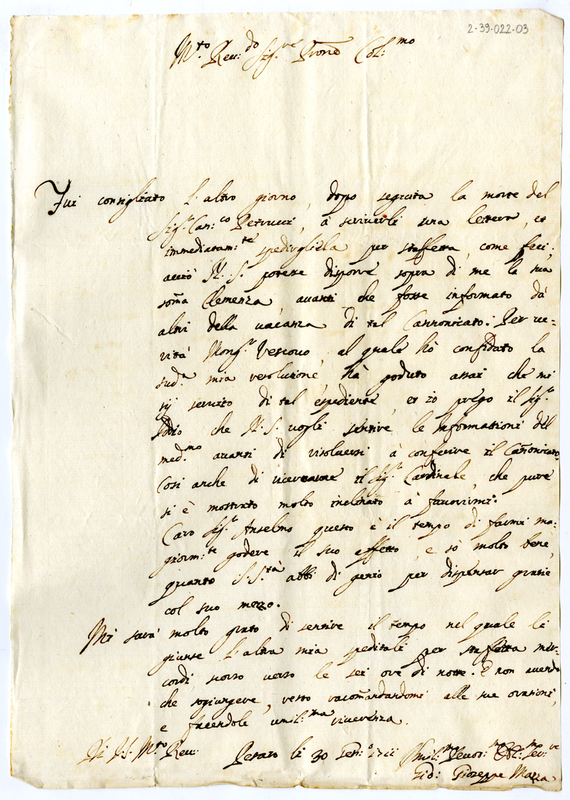 2-39-022-03
M.to Rev:do Sig.re Pron̄e Col:mo
Fui consigliato l'altro giorno, dopo seguita la morte del
Sig.r Can:co Petrucci, à scriverli una lettera, et
immediatam:te spedirgliela per staffetta, come feci,
acciò N. S. potesse disporre sopra di me la sua
som̄a Clemenza avanti che fosse informato dà
altri della vacanza di tal Cannonicato. Per ve-
rità Mons.r Vescovo, al quale hò confidato la
sud.a mia resoluzione, hà goduto assai che mi
sij servito di tal espediente, et io prego il Sig.r
Iddio che N. S. vogli sentire le informationi del
med.mo avanti di risolversi à conferire il Cañonicato.
Così anche di riceverne il Sig.r Cardinale, che pure
si è mostrato molto inclinato à favorirmi.
Caro Sig.r Anselmo questo è il tempo di farmi mag-
giorm:te godere il suo affetto, e sò molto bene,
quanto S. S.tà abbi di genio per dispensar gratie
col suo mezzo.
Mi sarà molto grato di sentire il tempo nel quale le
giunse l'altra mia speditale per staffetta mer-
cordì scorso verso le sei ore di notte. E non avendo
che sogiungere, resto racomandandomi alle sue orationi,
e facendole umil:ma riverenza.
Di V. S. M.to Rev: Pesaro li 30 1711 Umil:mo Devot:mo Obl:mo Ser:re
Gio: Giuseppe Mazza